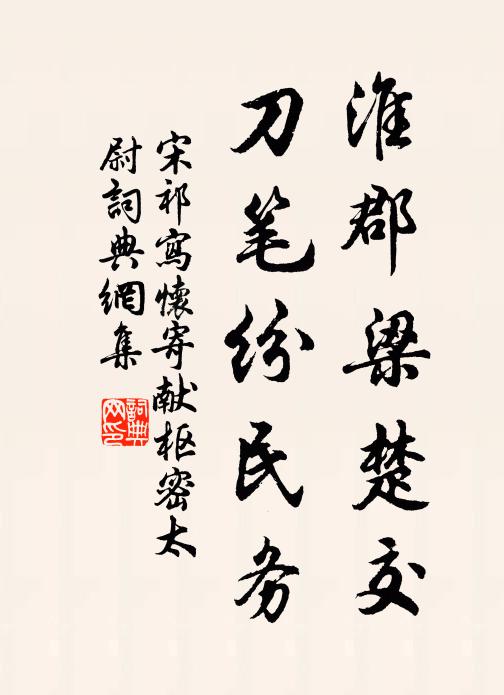 淮郡梁楚交
刀笔纷民务
宋祁寫懷寄献枢密太
尉詞典網集
詞典
网印